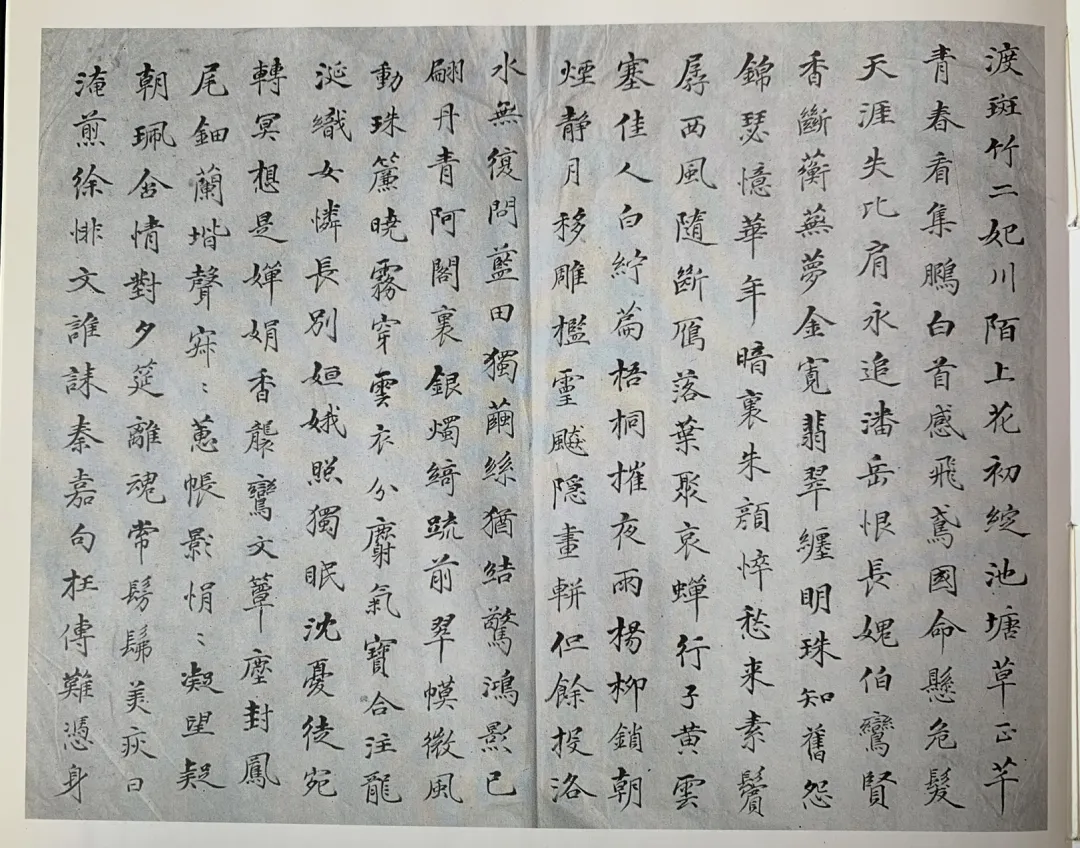 渡斑竹二妃川陌上花初綻池塘草正芊
青春看集鵩白首感飛鳶國命懸危髮
天涯失比肩永追潘岳恨長媿伯鸞賢
香斷蘅蕪夢金寬翡翠纏明珠知舊怨
錦瑟憶華年暗裏朱顏悴愁来素鬢
孱西風隨斷鴈落葉聚哀蟬行子黄雲
塞佳人白紵篇梧桐摧夜雨楊柳鎖朝
煙静月移雕檻靈飇隱畫輧但餘投洛
水無復問藍田獨繭絲猶結驚鴻影已
翩丹青阿閣裏銀燭綺疏前翠幙微風
動珠簾曉霧穿雲衣分麝氣寶合注龍
涎織女憐長別姮娥照獨眠沈憂徒宛
轉冥想是嬋娟香襲鸞文簟塵封鳳
尾鈿蘭堦聲寂〻蕙帳影悄〻凝望疑
朝珮含情對夕筵離魂常髣髴美疢日
淹煎徐悱文誰誄秦嘉句枉傳難憑身